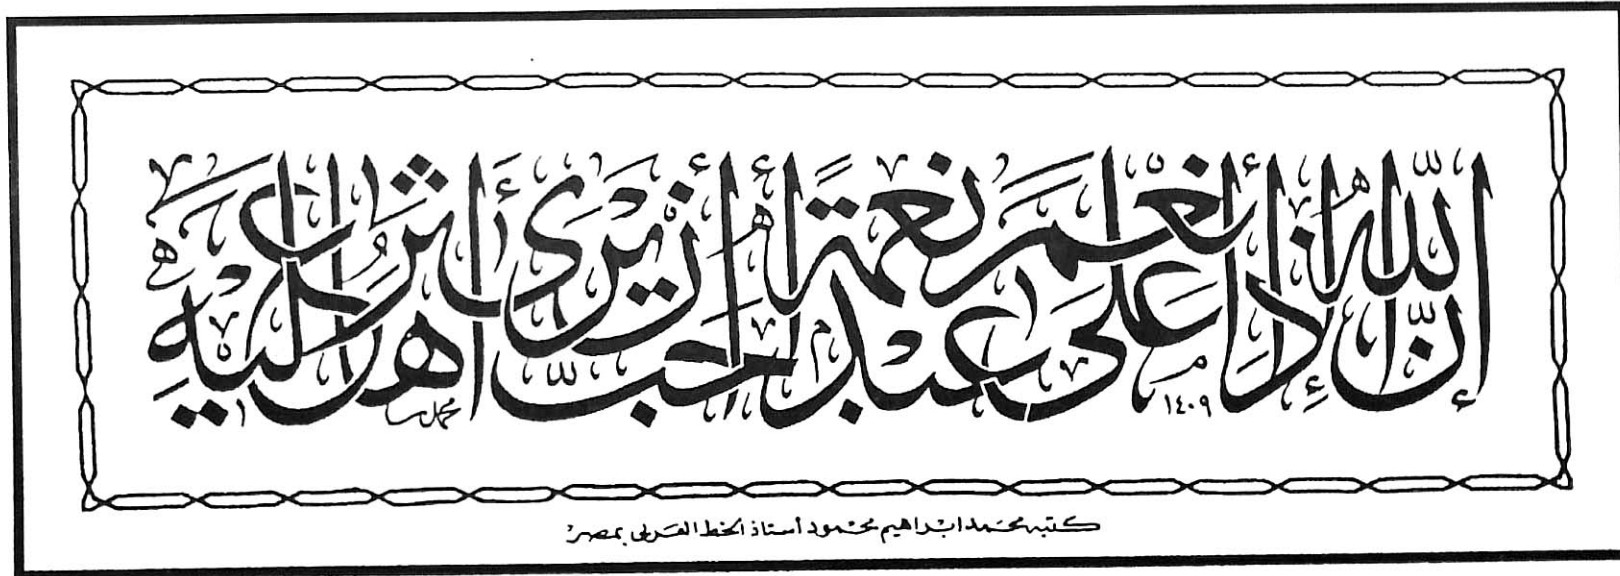 إنّ اللّه إذا أنعم على عبد نعمةً أحبّ أن يرى أثرها عليه
محمد ١٤٠٩
كتبه محمد ابراهيم محمود أستاذ الخط العربى بمصر